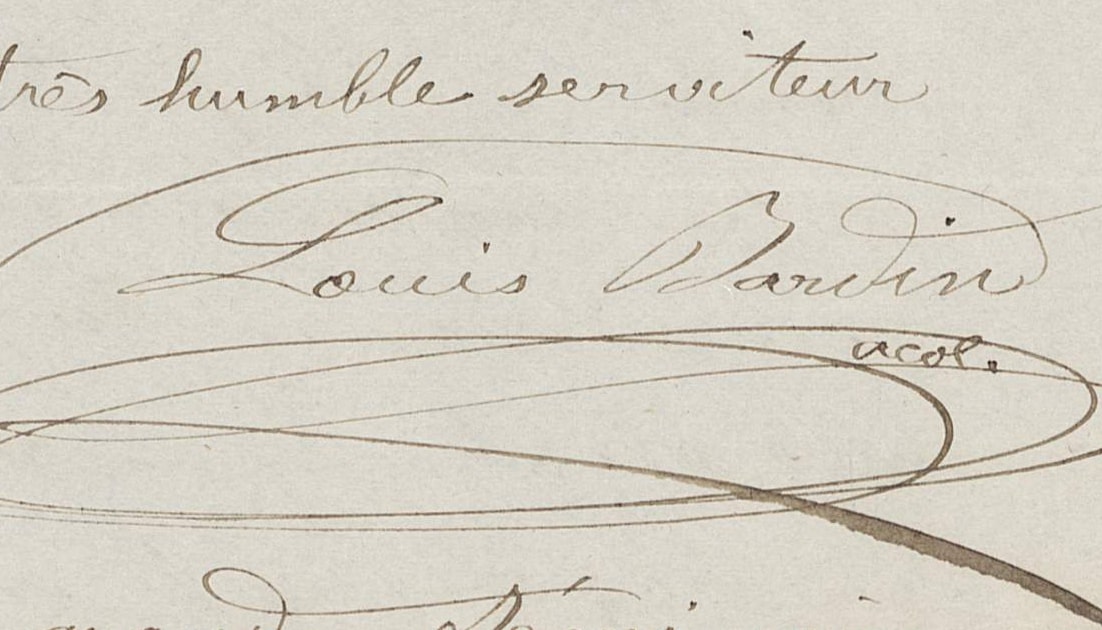 très humble serviteur
Louis Bardin
acol.
grand